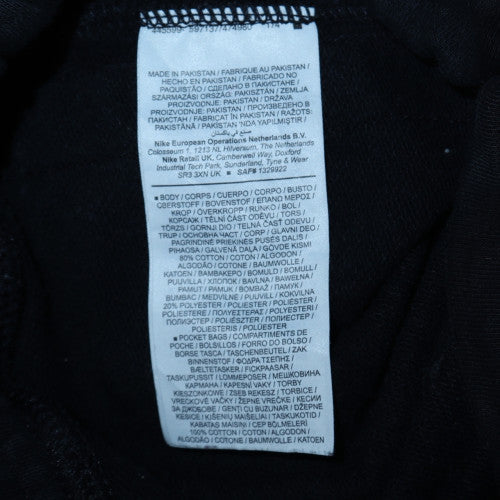 MADE IN PAKISTAN / FABRIQUE AU PAKISTAN /
FABRICADO EN PAKISTAN / FABBRICATO IN
PAQUISTÃO / СДЕЛАНО В ПАКИСТАНЕ /
SZÁRMAZÁSI ORSZÁG: PAKISZTÁN / ZEMLJA
PROIZVODNJE: PAKISTAN / DRŽAVA
PROIZVODNJE: PAKISTAN / ПРОИЗВЕДЕНО В
ПАКИСТАН / FABRICAT ÎN PAKISTAN / RAŽOTS:
PAKISTĀNĀ / PAKISTAN 'NDA YAPILMIŞTIR /
صنع في باكستان
Nike European Operations Netherlands B.V.
Colosseum 1, 1213 NL Hilversum, The Netherlands
Nike Retail UK, Camberwell Way, Doxford
Industrial Tech Park, Sunderland, Tyne & Wear
SR3 3XN UK SAF# 1329922
BODY / CORPS / CUERPO / CORPO / BUSTO /
OBERSTOFF / BOVENSTOF / ΕΠΑΝΩ ΜΕΡΟΣ /
KROP / ÖVERKROPP / RUNKO / BOL /
КОРСАЖ / TĚLNÍ ČÁST ODĚVU / TORS /
TÖRZS / GORNJI DIO / TELNÁ ČASŤ ODEVU /
TRUP / ОСНОВНА ЧАСТ / CORP / GLAVNI DEO /
PAGRINDINĖ PRIEKINĖS PUSĖS DALIS /
PIHAOSA / GALVENĀ DAĻA / GÖVDE KISMI
80% COTTON / COTON / ALGODÓN /
ALGODÃO / COTONE / BAUMWOLLE /
KATOEN / ΒΑΜΒΑΚΕΡΟ / BOMULD / BOMULL /
PUUVILLA / ХЛОПОК / BAVLNA / BAWEŁNA /
PAMUT / PAMUK / BOMBAŽ / ПАМУК /
BUMBAC / MEDVILNĖ / PUUVILL / KOKVILNA
20% POLYESTER / POLIÉSTER / POLIESTERE /
POLIESTERE / ΠΟΛΥΕΣΤΕΡΑΣ / POLYESTERI /
ПОЛИЭСТЕР / POLIÉSZTER / ПОЛИЕСТЕР /
POLIESTERIS / POLÜESTER
POCKET BAGS / COMPARTIMENTS DE
POCHE / BOLSILLOS / FORRO DO BOLSO /
BORSE TASCA / TASCHENBEUTEL / ZAK
BINNENSTOF / ΦΟΔΡΑ ΤΣΕΠΗΣ /
BÆLTETASKER / FICKAVDELNINGAR /
TASKUPUSSIT / LOMMEPOSER / МЕШКОВИНА
КАРМАНА / KAPESNÍ VAKY / TORBY
KIESZONKOWE / ZSEB RÉSZEK / TORBICE /
VRECKOVÉ VAČKY / ŽEPNE VREČKE / КЕСИИ
ЗА ДЖОБОВЕ / GENȚI CU BUZUNAR / DŽEPNE
KESICE / KIŠENIŲ MAIŠELIAI / TASKUKOTID /
KABATAS MAISIŅI / CEP BÖLMELERİ
100% COTTON / COTON / ALGODÓN /
ALGODÃO / COTONE / BAUMWOLLE / KATOEN